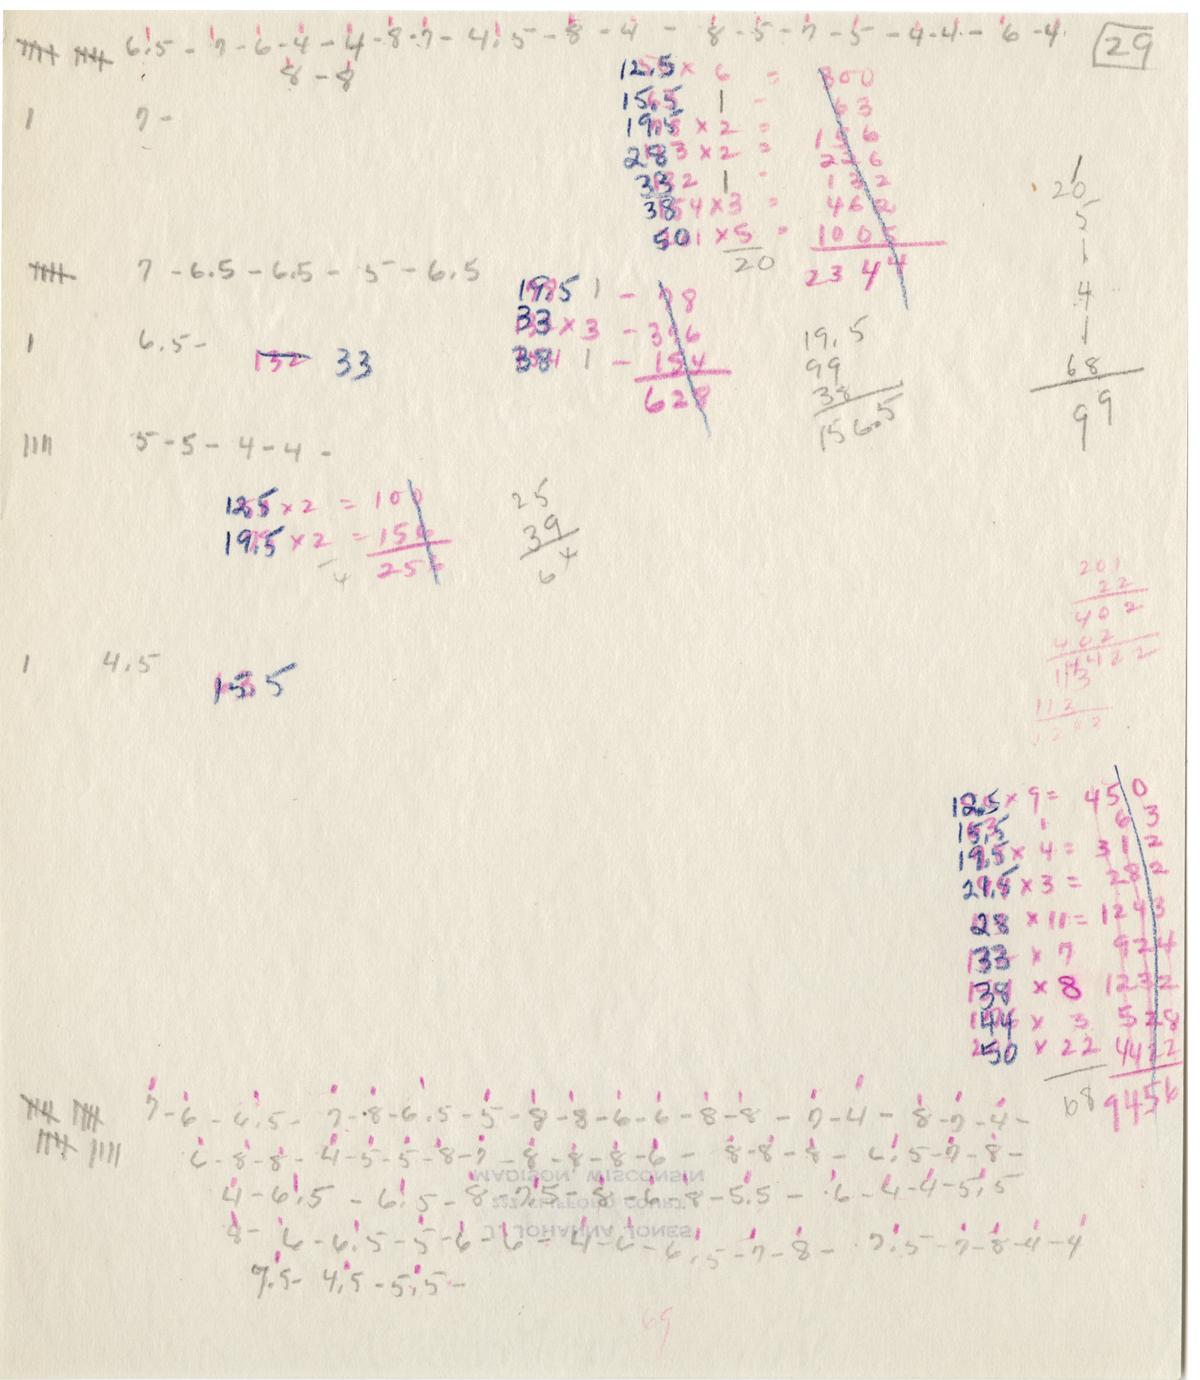 6.5 - 7 - 6 - 4 - 4 - 8 - 7 - 4.5 - 8 - 4 - 8 - 5 - 7 - 5 - 4 - 4 - 6 - 4.
29
8 - 8
1 7 -
12.5 × 6 = 300
15.5 1 - 63
19.5 × 2 = 156
28 × 2 = 226
33 1 - 132
38 × 3 = 462
50 × 5 = 1005
20 2344
20
5
1
4
1
68
99
7 - 6.5 - 6.5 - 5 - 6.5
19.5 1 - 78
33 × 3 - 396
38 1 - 154
628
19.5
99
38
156.5
1 6.5 -
132 33
5 - 5 - 4 - 4 -
12.5 × 2 = 100
19.5 × 2 = 156
4 256
25
39
64
201
22
402
402
4422
113
113
1 4.5
15.5
12.5 × 9 = 450
15.5 1 63
19.5 × 4 = 312
× 3 = 282
28 × 11 = 1243
33 × 7 924
38 × 8 1232
44 × 3 528
50 × 22 4422
68 9456
7 - 6 - 6.5 - 7 - 8 - 6.5 - 5 - 8 - 8 - 6 - 6 - 8 - 8 - 7 - 4 - 8 - 7 - 4 -
6 - 8 - 8 - 4 - 5 - 5 - 8 - 7 - 8 - 8 - 8 - 6 - 8 - 8 - 8 - 6.5 - 7 - 8 -
4 - 6.5 - 6.5 - 8 - 7.5 - 8 - 6 - 8 - 5.5 - 6 - 4 - 4 - 5.5
8 - 6 - 6.5 - 5 - 6 - 6 - 4 - 6 - 6.5 - 7 - 8 - 7.5 - 7 - 8 - 4 - 4
7.5 - 4.5 - 5.5 -
MADISON, WISCONSIN
J. JOHANNA JONES
69